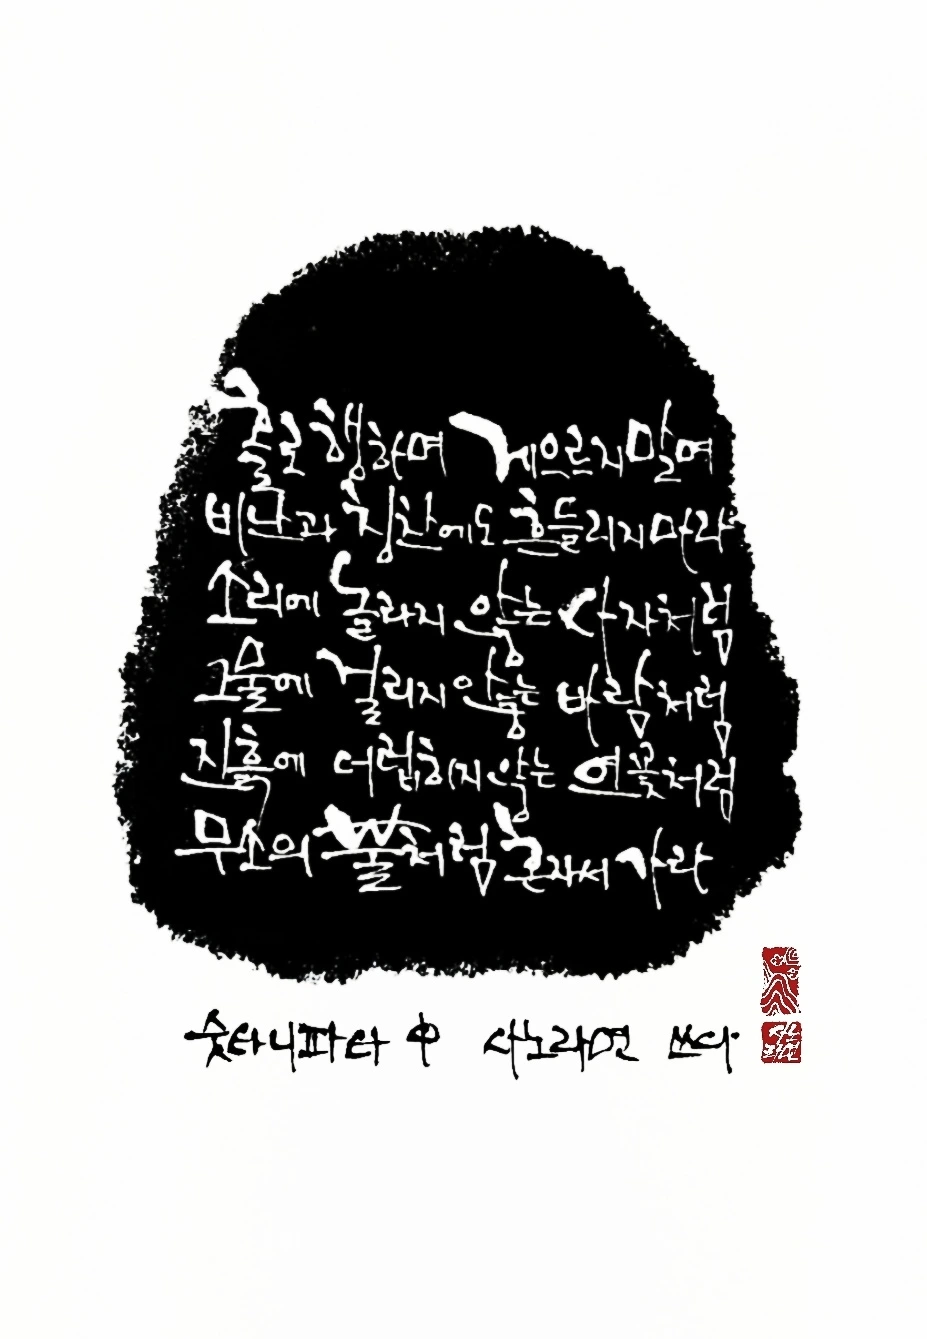 홀로 행하며 게으르지 말며
비난과 칭찬에도 흔들리지 마라
소리에 놀라지 않는 사자처럼
그물에 걸리지 않는 바람처럼
진흙에 더럽히지 않는 연꽃처럼
무소의 뿔처럼 혼자서 가라
숫타니파타 中 사노라면 쓰다